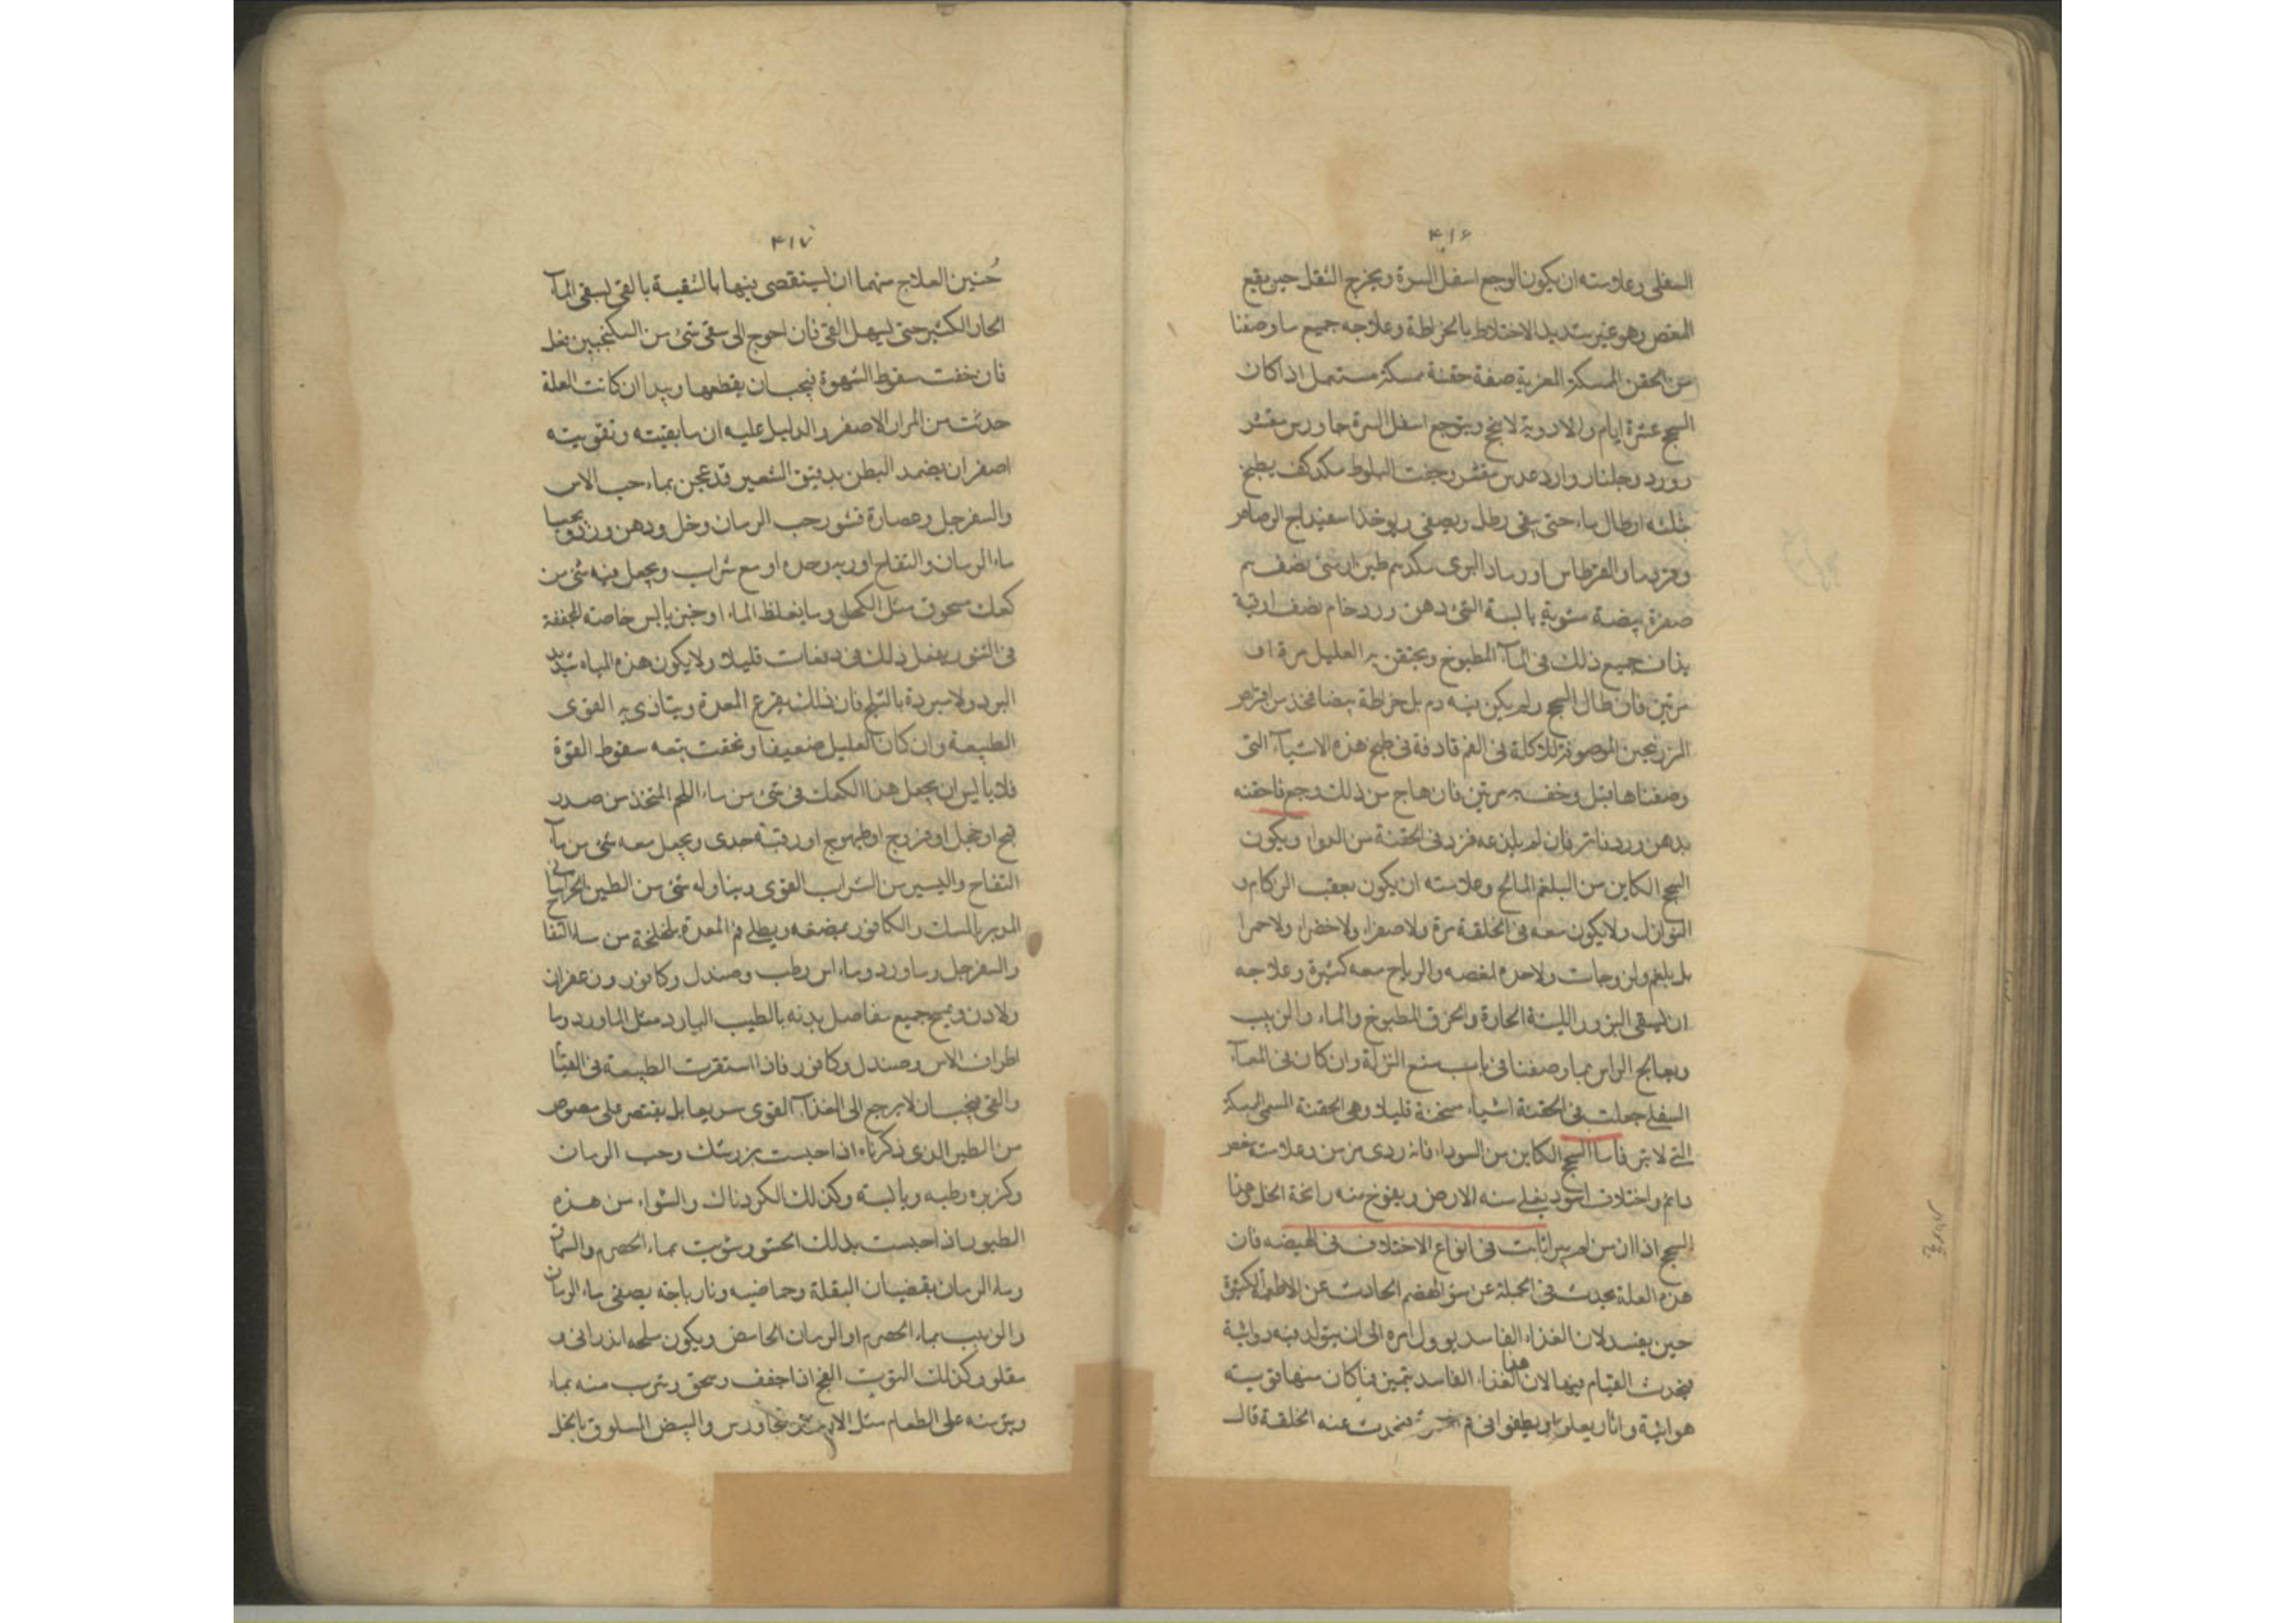 ٤١٦
السفلى وعلامته ان يكون الوجع اسفل السرة ويخرج الثفل حين يقع
المغص وهو غير شديد الاختلاط بالخراطة وعلاجه جميع ما وصفنا
من الحقن الممسكة المغرية صفة حقنة ممسكة مستعمل اذا كان
السحج عشرة ايام والادوية لا تنجح ويتوجع اسفل السرة جاورس مقشر
وورد وجلنار وارز وعدس مقشر وجفت البلوط مكد كف يطبخ
بثلثه ارطال ماء حتى يبقى رطل ويصفى ويوخذ اسفيداج الرصاص
والقرطاس او رماد البردى مكدرهم طين ارمنى نصف درهم
صفرة بيضة مشوية يابسة الشئ دهن ورد خام نصف اوقية
يذاف جميع ذلك فى المآء المطبوخ ويحتقن به العليل مرة او
مرتين فان طال السحج ولم يكن فيه دم بل خراطة بيضا فخذ من اقراص
الزرنيخين الموصوفة للاكلة فى الفم فادفه فى طبخ هذه الاشيآء التى
وصفناها قبل وخفف به مرتين فان هاج من ذلك وجع فاحقنه
بدهن ورد فاتر فان لم يلذعه فزد فى الحقنة من الدوا ويكون
السحج الكاين من البلغم المالح وعلامته ان يكون بعقب الزكام و
النوازل ولا يكون معه فى الخلقة مرة ولا صفرا ولا خضرا ولا حمرا
بل بلغم ولزوجات ولا حدة لمغصه والرياح معه كثيرة وعلاجه
ان يسقى البزور اللينة الحارة والحرف المطبوخ والماء والزبيب
ويعالج الراس بما وصفنا فى باب منع النزلة وان كان فى المعآء
السفلى جعلت فى الحقنة اشياء مسخنة قليلا وهى الحقنة المسمى الممسكة
التى لا تبرد فاما السحج الكاين من السودا فانه ردى مزمن وعلامته مغص
دايم واختلاف اسود يغلى منه الارض ويفوح منه رائحة الخل وهنا
السحج اذا ازمن لم يبرا ثابت فى انواع الاختلاف فى الهيضه فان
هذه العلة يحدث فى الجملة عن سؤ الهضم الحادث عن الاطعمة الكثيرة
حين يفسد لان الغذاء الفاسد يوول امره الى ان يتولد فيه
فيحدث القيام منها لان هذا الغذاء الفاسد يتميز فما كان منها قويته
هوائية واثار يعلو او يطفوا فى فم فيحدث عنه الخلقة قال
٤١٧
حُنين العلاج منهما ان يستقصى فيها بالتنقية بالقى يسقى المآء
الحار الكثير حتى يسهل القى فان احوج الى سقى شئ من السكنجبين فعل
فان خفت سقوط الشهوة فيجب ان يقطعها ويبدا ان كانت العلة
حدثت من المرار الاصفر والدليل عليه ان ما بقيته وتقويته
اصفر ان يضمد البطن بدقيق الشعير قد عجن بماء حب الاس
والسفرجل وعصارة قشور حب الرمان وخل ودهن ورد
ماء الرمان والتفاح او ربه وحده او مع شراب ويجعل فيه شئ من
كعك مسحوق مثل الكحل وما يغلظ الماء او خبز يابس خاصة المجففة
فى التنور يفعل ذلك فى دفعات قليلا ولا يكون هذه المياه شديد
البرد ولا مبردة بالثلج فان ذلك يقرع المعدة ويتاذى به القوى
الطبيعة وان كان العليل ضعيفا وتخفت معه سقوط القوة
فلا باس ان يجعل هذا الكعك فى شئ من ماء اللحم المتخذ من صدر
قبج او حجل او فروج او طيهوج او رقبة جدى ويجعل معه شئ من مآء
التفاح واليسير من الشراب القوى ويناوله شئ من الطين الخراسانى
المدبر بالمسك والكافور يمضغه ويطلى فم المعدة بلخلخة من ماء التفاح
والسفرجل وماورد وماء اس رطب وصندل وكافور وزعفران
ولادن ويمسح جميع مفاصل بدنه بالطيب البارد مثل الماورد وما
اطراف الاس وصندل وكافور فاذا استقرت الطبيعة فى القيا
والقى فيجب ان لا يرجع الى الغذآء القوى سريعا بل يقتصر على مصوص
من الطير الذى ذكرناه اذا حبست بزرشك وحب الرمان
وكزبره رطبه ويابسه وكذلك الكردناك والشواء من هذه
الطيور اذا حبست بذلك الحشو وشويت بماء الحصرم والسماق
وماء الرمان بقضبان البقلة وحماضيه ونارباجه يصفى ماء الرمان
والزبيب بماء الحصرم او الرمان الحامض ويكون ملحه اندرانى و
مقلو وكذلك التوت الفج اذا جفف وسحق وشرب منه بماء
وينثر منه على الطعام مثل الارز والجاورس والبيض المسلوق بالخل